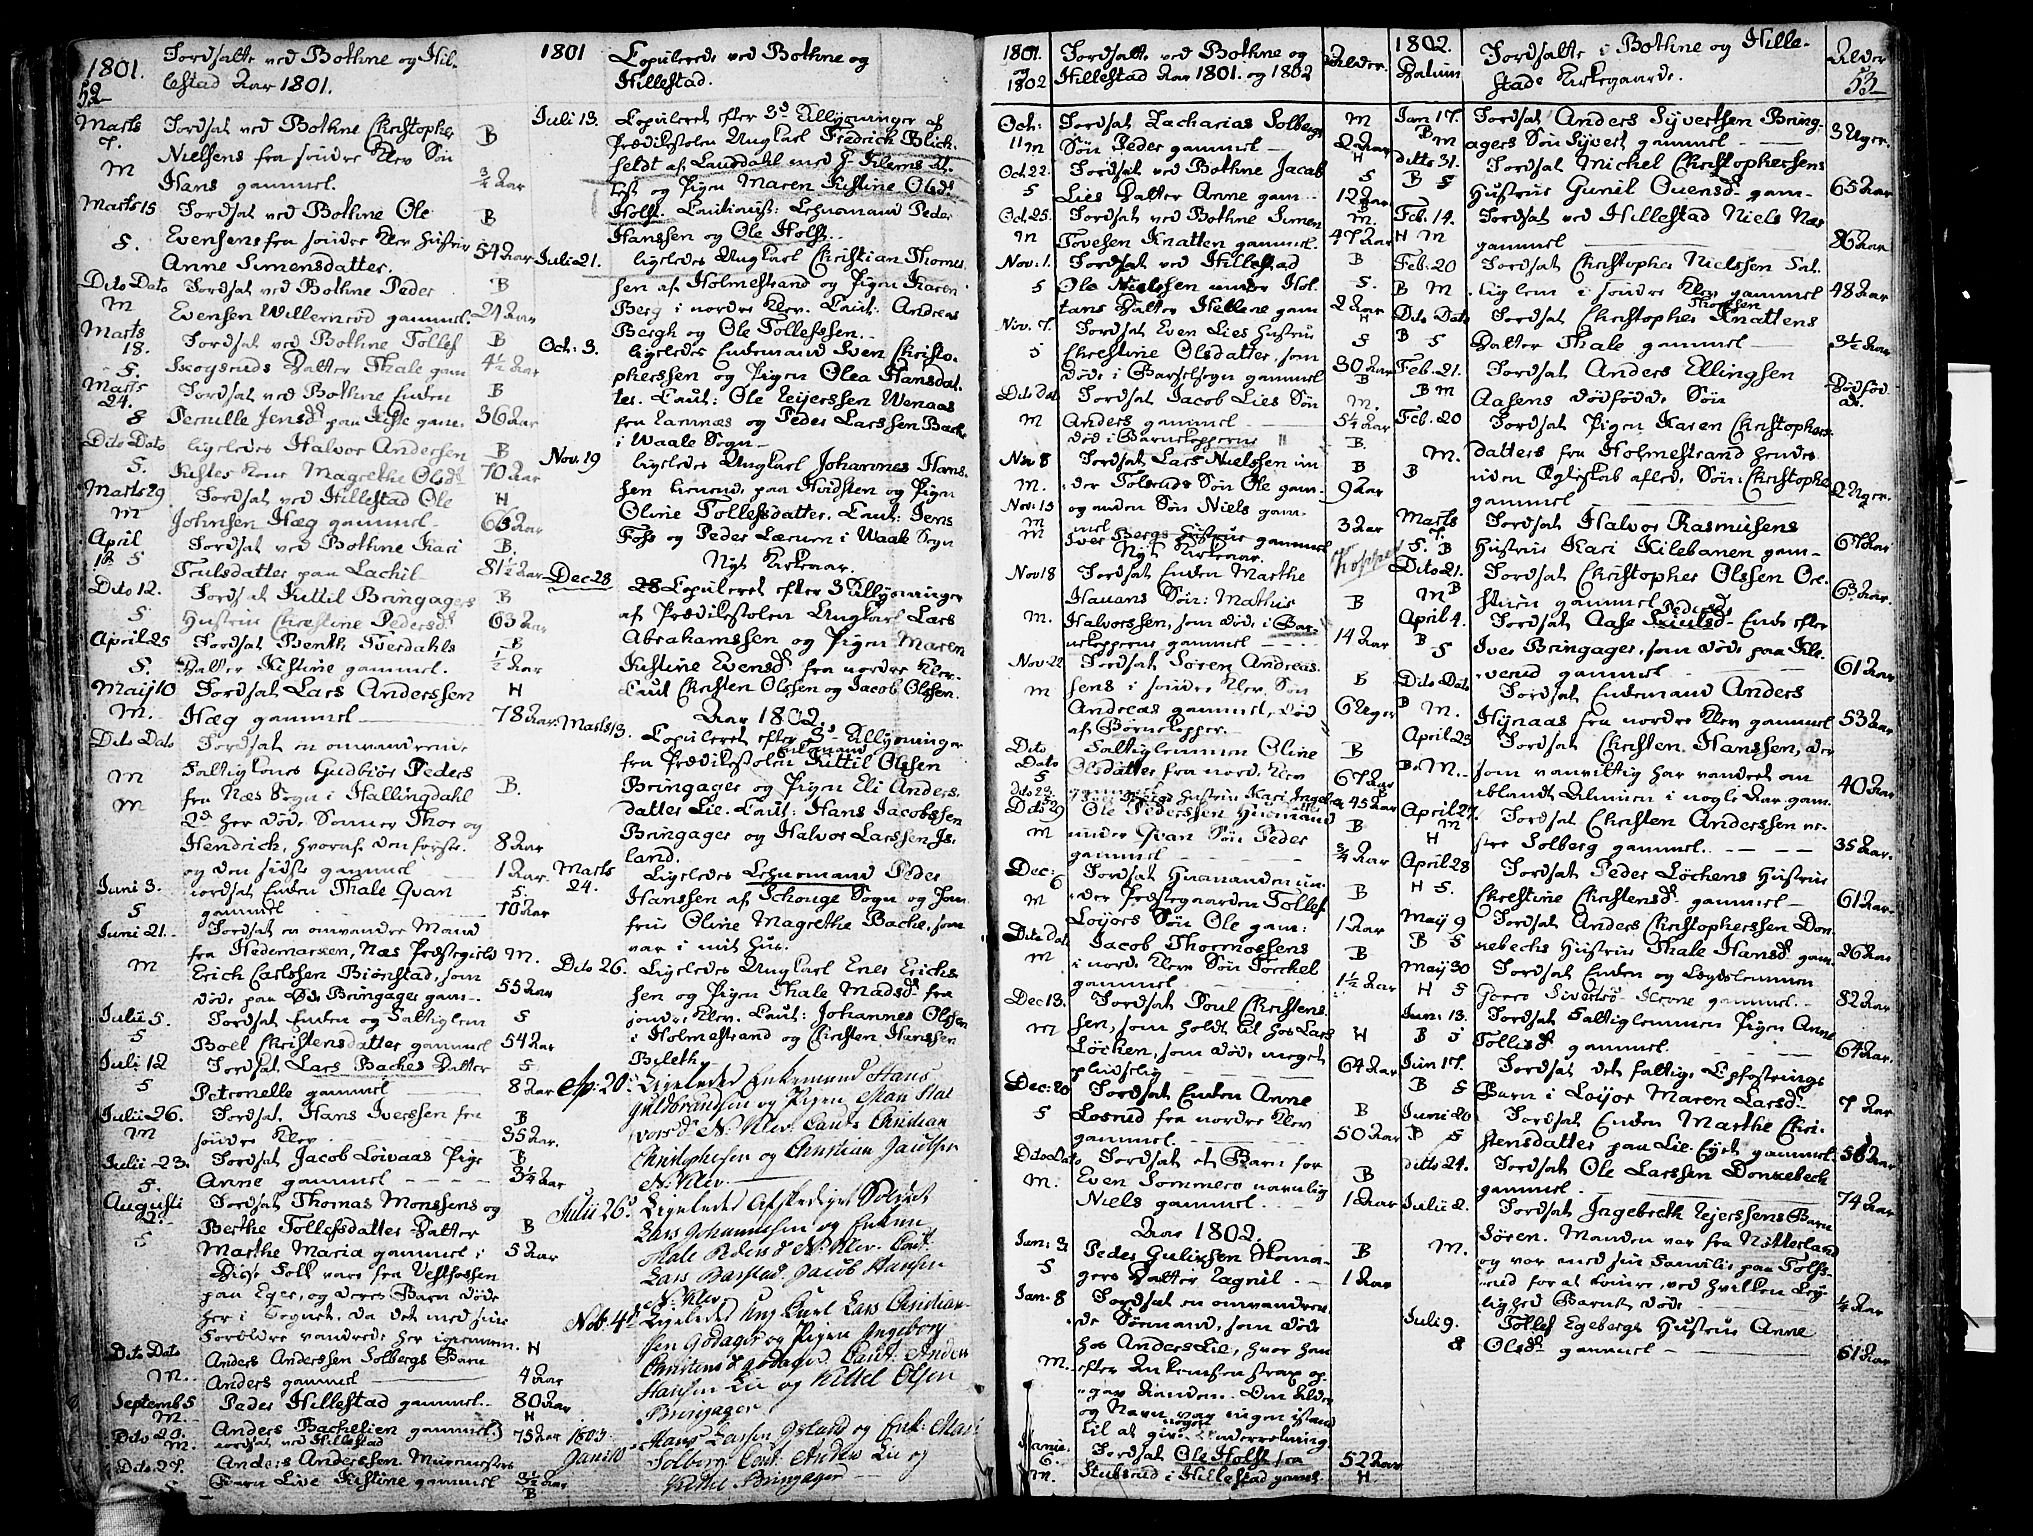 1801.
52
Jordsatte ved Bothne og Hil-
lestad Aar 1801.
Marts
Jordsat ved Bothne Christopher
B
M
Nielsens fra søndre Klev Søn
Hans gammel.
3/4 Aar
Marts 15
Jordsat ved Bothne Ole
B
S.
Evensens fra søndre Klev Hustru
54 Aar
Anne Simensdatter.
Dito Dato
Jordsat ved Bothne Peder
B
M
Evensen Willernrød gammel.
21 Aar
Marts 18.
Jordsat ved Bothne Tollef
B
S.
Skogsruds Datter Thale gam
4½ Aar
Marts 24.
Jordsat ved Bothne Enken
B
S
Pernille Jensd. paa gam.
36 Aar
Dito Dato
ligeledes Halvor Andersen
B
S.
Magrethe Olsd.
70 Aar
Marts 29
Jordsat ved Hillestad Ole
H
M
Johnsen Hæg gammel
66 Aar
April
Jordsat ved Bothne Kari
B.
18 S
Trulsdatter paa
81½ Aar
Dito 12.
Jordsat Kittil Bringagers
B
S
Hustru Christine Pedersd.
63 Aar
April 25
Jordsat Benth Tverdahls
B
S.
Datter Kistine gammel.
½ Aar
Maij 10
Jordsat Lars Anderssen
H
M.
Hæg gammel
78 Aar.
Dito Dato
Jordsat en omvandrende
M
Fattig Kones Gudbiør Peders
fra Næs Sogn i Hallingdahl
B.
M
2de her døde Sønner Thor og
Hendrich, hvoraf den første
8 Aar
og den sidste gammel
1 Aar.
Juni 3.
Jordsat Enken Thale Qvan
S.
S
gammel
70 Aar
Juni 21.
Jordsat en omvandre Mand
fra Hedemarken, Næs Præstegield
M.
M
Erich Carlssen Biønstad, som
døde paa Øde Bringager gam.
55 Aar
Julii 5.
Jordsat Enken og Fattiglem
S
S
Boel Christensdatter gammel
54 Aar
Juli 12
Jordsat Lars Baches Datter
S
S
Petronelle gammel
8 Aar
Julii 26.
Jordsat Hans Iverssen fra
B
M
søndre Klev
35 Aar.
Julii 23.
Jordsat Jacob Løivaas Pige
B
S.
Anne gammel
3½ Aar
Augusti
2.
Jordsat Thomas Monssens og
Berthe Tollefsdatter Datter
B
S
Marthe Maria gammel
5 Aar
Disse Folk vare fra Vestfossen
paa Eger, og deres Barn døde
her i Sognet, da det med sine
Forældre vandrede her igiennem.
Dito Dato
Anders Anderssen Solbergs Barn
H
M.
Anders gammel
4 Aar
Septemb 5
Peder Hillestad gammel
80 Aar
M.
H
Dito 20.
Anders Bachelien gammel
75 Aar
M.
jordsat ved Hillestad
Dito 27.
Anders Anderssen
S
Barn Live Kistine gammel
B
1801
Copulerede ved Bothne og
Hillestad.
Juli 13.
Copuleret efter 3de Tillysninger af
Prædikestolen Ungkarl Fredrich Blich-
feldt af Laurdahl med
og Pigen Maren Kistine Olsd.
Holst. Cautionist: Lehnsmand Peder
Hanssen og Ole Holst.
Julii 21.
ligeledes Ungkarl Christian Thomes-
sen af Holmestrand og Pigen Karen
Berg i nordre Klev. Caut: Andreas
Bergh og Ole Tollefssen.
Oct: 3.
ligeledes Enkemand Sven Christo-
pherssen og Pigen Olea Hansdat-
ter. Caut: Ole Reijerssen Wenaas
fra Ramnæs og Peder Larssen Bache
i Waale Sogn
Nov. 19
ligeledes Ungkarl Johannes Hans-
sen paa Hvidsten og Pigen
Oline Tollefsdatter. Caut: Jens
Foss og Peder Lærum i Waale Sogn
Nyt Kirkeaar.
Dec 28
Copuleret efter 3 Tillysninger
af Prædikestolen Ungkarl Lars
Abrahamssen og Pigen Maren
Kistine Evensd. fra nordre Klev.
Caut Christen Olssen og Jacob Olssen.
Aar 1802.
Marts 13.
Copuleret efter 3de Tillysninger
Enkemand
fra Prædikestolen Kittil Olssen
Bringager og Pigen Eli Anders-
datter Lie. Caut: Hans Jacobssen
Bringager og Halvor Larssen Is-
land.
Marts 24.
Ligeledes Lehnsmand Peder
Hanssen af Schouge Sogn og Jom-
frue Oline Magrethe Bache, som
var i mit Huus.
Dito 26.
Ligeledes Ungkarl Ener Erichs-
sen og Pigen Thale Madsd. fra
søndre Klev. Caut: Johannes Olssen
i Holmestrand og Christen Hanssen
Bileth.
20:
Ligeledes Enkemand Hans
Guldbrandsen og Pigen Mari Hal-
vorsd. N. Klev. Caut. Christian
Christophersen og Christian Jacobsen
N. Klev.
Julii 26d.
Ligeledes Afskediget Soldat
Lars Johannesen og Enken
Thale Pedersd. N. Klev. Caut.
Lars Barstad. Jacob Hansen
N. Klev.
Nob. 4d.
Ligeledes Ung Karl Lars Christian-
sen Godager og Pigen Ingeborg
Christensd. Godager. Caut. Anders
Hansen Lie og Kittel Olsen
Bringager.
1803.
Jani 10
Hans Larsen Island og Enk. Mari
Solberg. Caut. Anders Lie og
Kittil Bringager
1801.
og
1802
Jordsatte ved Bothne og
Hillestad Aar 1801. og 1802
Alder.
Oct:
11
Jordsat Zacharias Solbergs
M
M
Søn Peder gammel
2 Aar
H
Oct 22.
Jordsat ved Bothne Jacob
S
S
Lies Datter Anne gam.
12 Aar
B
Oct. 25.
Jordsat ved Bothne Simen
M.
M
Tovesen Knatten gammel
47 Aar
Nov. 1.
Jordsat ved Hillestad
B
S
Ole Nielssen under Hol-
S.
tans Datter Hellene gam
2 Aar
H
Nov. 7.
Jordsat Even Lies Hustru
S
Christine Olsdatter, som
S
døde i Barselseng gammel
30 Aar
B
Dito dat
Jordsat Jacob Lies Søn
M.
M
Anders gammel
5¼ Aar
død i Barnekopperne
B.
Nov 8
Jordsat Lars Nielssen un-
B
M.
der Tolsruds Søn Ole gam-
9 Aar
Nov: 15
og anden Søn Niels gam-
M
mel
3 Aar
M
Iver Bergs Hustrue gammel
Nyt Kirkeaar.
Kopper
Nov 18
Jordsat Enken Marthe
Hauans Søn: Mathis
B
M.
Halvorssen, som døde i Bar-
nekopperne gammel
14 Aar
Nov. 22
Jordsat Søren Andreas-
M
sens i søndre Klev Søn
B
Andreas gammel, død
6 Uger
af Børnekopper.
Dito Dato
Fattiglemmen Oline
B
S
Olsdatter fra nord. Klev
67 Aar
gammel
Hustru Kari
45 Aar
B
Dito 29
Ole Pederssen Huusmand
B
M
under Qvan Søn Peder
gammel
3/4 Aar
Dec: 6
Jordsat Huusmanden un-
B
M
der Præstegaarden Tollef
Løijørs Søn Ole gam:
1 Aar
Dito dat
Jacob Thormoesens
B
M
i nord. Klev Søn Torckel
gammel
1½ Aar
Dec 13.
Jordsat Poul Christens-
M
sen, som holdt til hos Lars
H
Løchen, som døde meget
64 Aar
pludselig
Dec: 20
Jordsat Enken Anne
B
S
Losrud fra nordre Klev
gammel.
50 Aar
Dito Dato
Jordsat et Barn for
B
M.
Even Sommero navnlig
Niels gammel
1 Aar
Aar 1802.
Jan: 3
Peder Gulichsen Homa-
B
S
gers Datter Ragnil
1 Aar
Jan. 8
Jordsat en omvandren-
de Sømand, som døde
hos Anders Lie, hvor han
M.
efter Ankomsten strax op-
gav Aanden. Om Alder
og Navn var ingen istand
til at give nogen Underretning.
6.
Jordsat Ole Holst fra
52 Aar
M.
Stulsrud i Hillestad gamel
H.
1802.
Datum
Jordsatte i Bothne og Hille-
stads Kirkegaarde.
Alder
53
Jan 17.
Jordsat Anders Syvertsen Bring-
B M
agers Søn Syvert gammel
3 Uger.
ditto 31.
Jordsat Michel Christophersens
B S
Hustrue Gunil Ouensd. gam-
65 Aar
Feb. 14.
Jordsat ved Hillestad Niels Næs
H M
gammel
86 Aar
Feb. 20
Jordsat Christopher Nielssen Fat-
B M
tiglem i søndre Klev gammel
48 Aar
Dito Dato
Jordsat Christopher Thorssen Knattens
B S
Datter Thale gammel
3½ Aar
Feb. 21.
Jordsat Anders Ellingsen
B M
Aasens dødfødde Søn
Dødfød-
de.
Feb. 20
Jordsat Pigen Karen Christophers-
M.
datters fra Holmestrand hendes
B
uden Ægteskab afled. Søn: Christopher
gammel
2 Uger.
Marts
Jordsat Halvor Rasmusens
S. B
Hustrue Kari Kilebanen gam-
67 Aar
Dito 21.
Jordsat Christopher Olssen Ore-
M B
stuen gammel
63 Aar.
April 4.
Jordsat Aase Pedersd. Enke efter
B S
Iver Bringager, som døde paa Kle-
verud gammel
61 Aar
Dito Dato
Jordsat Enkemand Anders
B M.
Hynaas fra nordre Klev gammel
53 Aar
April 23
Jordsat Christen Hanssen, der
B. M.
som vanvittig har vandret om
iblandt Almuen i nogle Aar gam.
40 Aar
April 27.
M
Jordsat Christen Anderssen ve-
H
stre Solberg gammel.
35 Aar.
April 28
Jordsat Peder Løchens Hustrue
H S.
Christine Christensd. gammel
61 Aar.
Maij 9
Jordsat Anders Christopherssen Don-
B S
nebechs Hustrue Thale Hansd. gam.
26 Aar
Maij 30
Jordsat Enken og Lægdslemmen
H S
Goro gammel
82 Aar
Juni 13.
Jordsat Fattiglemmen Pigen Anne
B S
Tollisd. gammel
64 Aar.
Juni 17.
Jordsat det fattige Opfostrings
B S
Barn i Løijør Maren Larsd.
7 Aar
Juni 20
Jordsat Enken Marthe Chri-
B S
stensdatter paa Lie Eijet gammel
56 Aar
ditto 24.
Jordsat Ole Larssen Donnebech
gammel
74 Aar
Julii 2.
Jordsat Ingebreth Reijerssens Barn
M.
Søren. Manden var fra Nøtterland
og var med sin Familie paa Tolfs-
rud for at kiøre, ved hvilken Ley-
lighed Barnet døde
¼ Aar
Juli 9.
Tollef Egebergs Hustrue Anne
S
Olsd. gammel
61 Aar